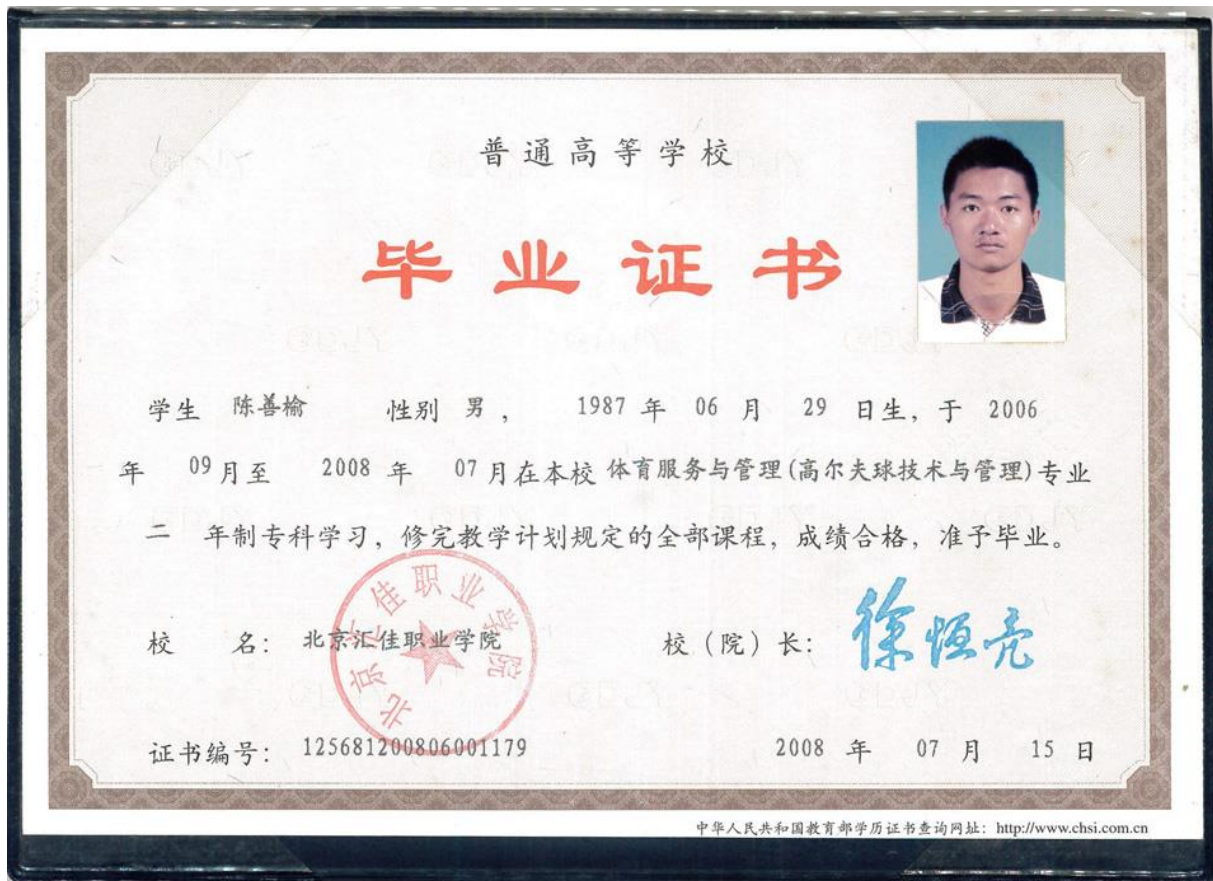 普通高等学校
毕业证书
学生 陈善榆 性别 男, 1987 年 06 月 29 日生, 于 2006
年 09 月至 2008 年 07 月在本校 体育服务与管理(高尔夫球技术与管理) 专业
二 年制专科学习, 修完教学计划规定的全部课程, 成绩合格, 准予毕业。
北京汇佳职业学院
校 名: 北京汇佳职业学院 校(院)长: 徐恒亮
证书编号: 125681200806001179 2008 年 07 月 15 日
中华人民共和国教育部学历证书查询网址: http://www.chsi.com.cn